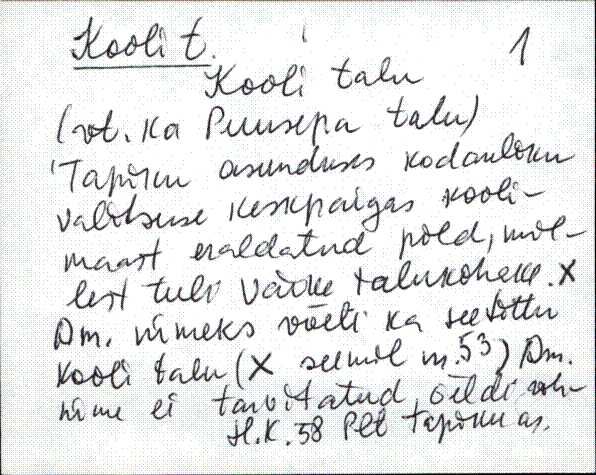 Kooli t. 1
Kooli talu
(vt. ka Puusepa talu)
Tapiku asunduses kodanliku
valitsuse keskpaigas kooli-
maast eraldatud põld, mil-
lest tuli väike talukoheke. X
Pm. nimeks võeti ka seetõttu
Kooli talu (X seemil m. 53) Pm.
nime ei tarvitatud, öeldi
H.K. 58 Plt Tapiku as.